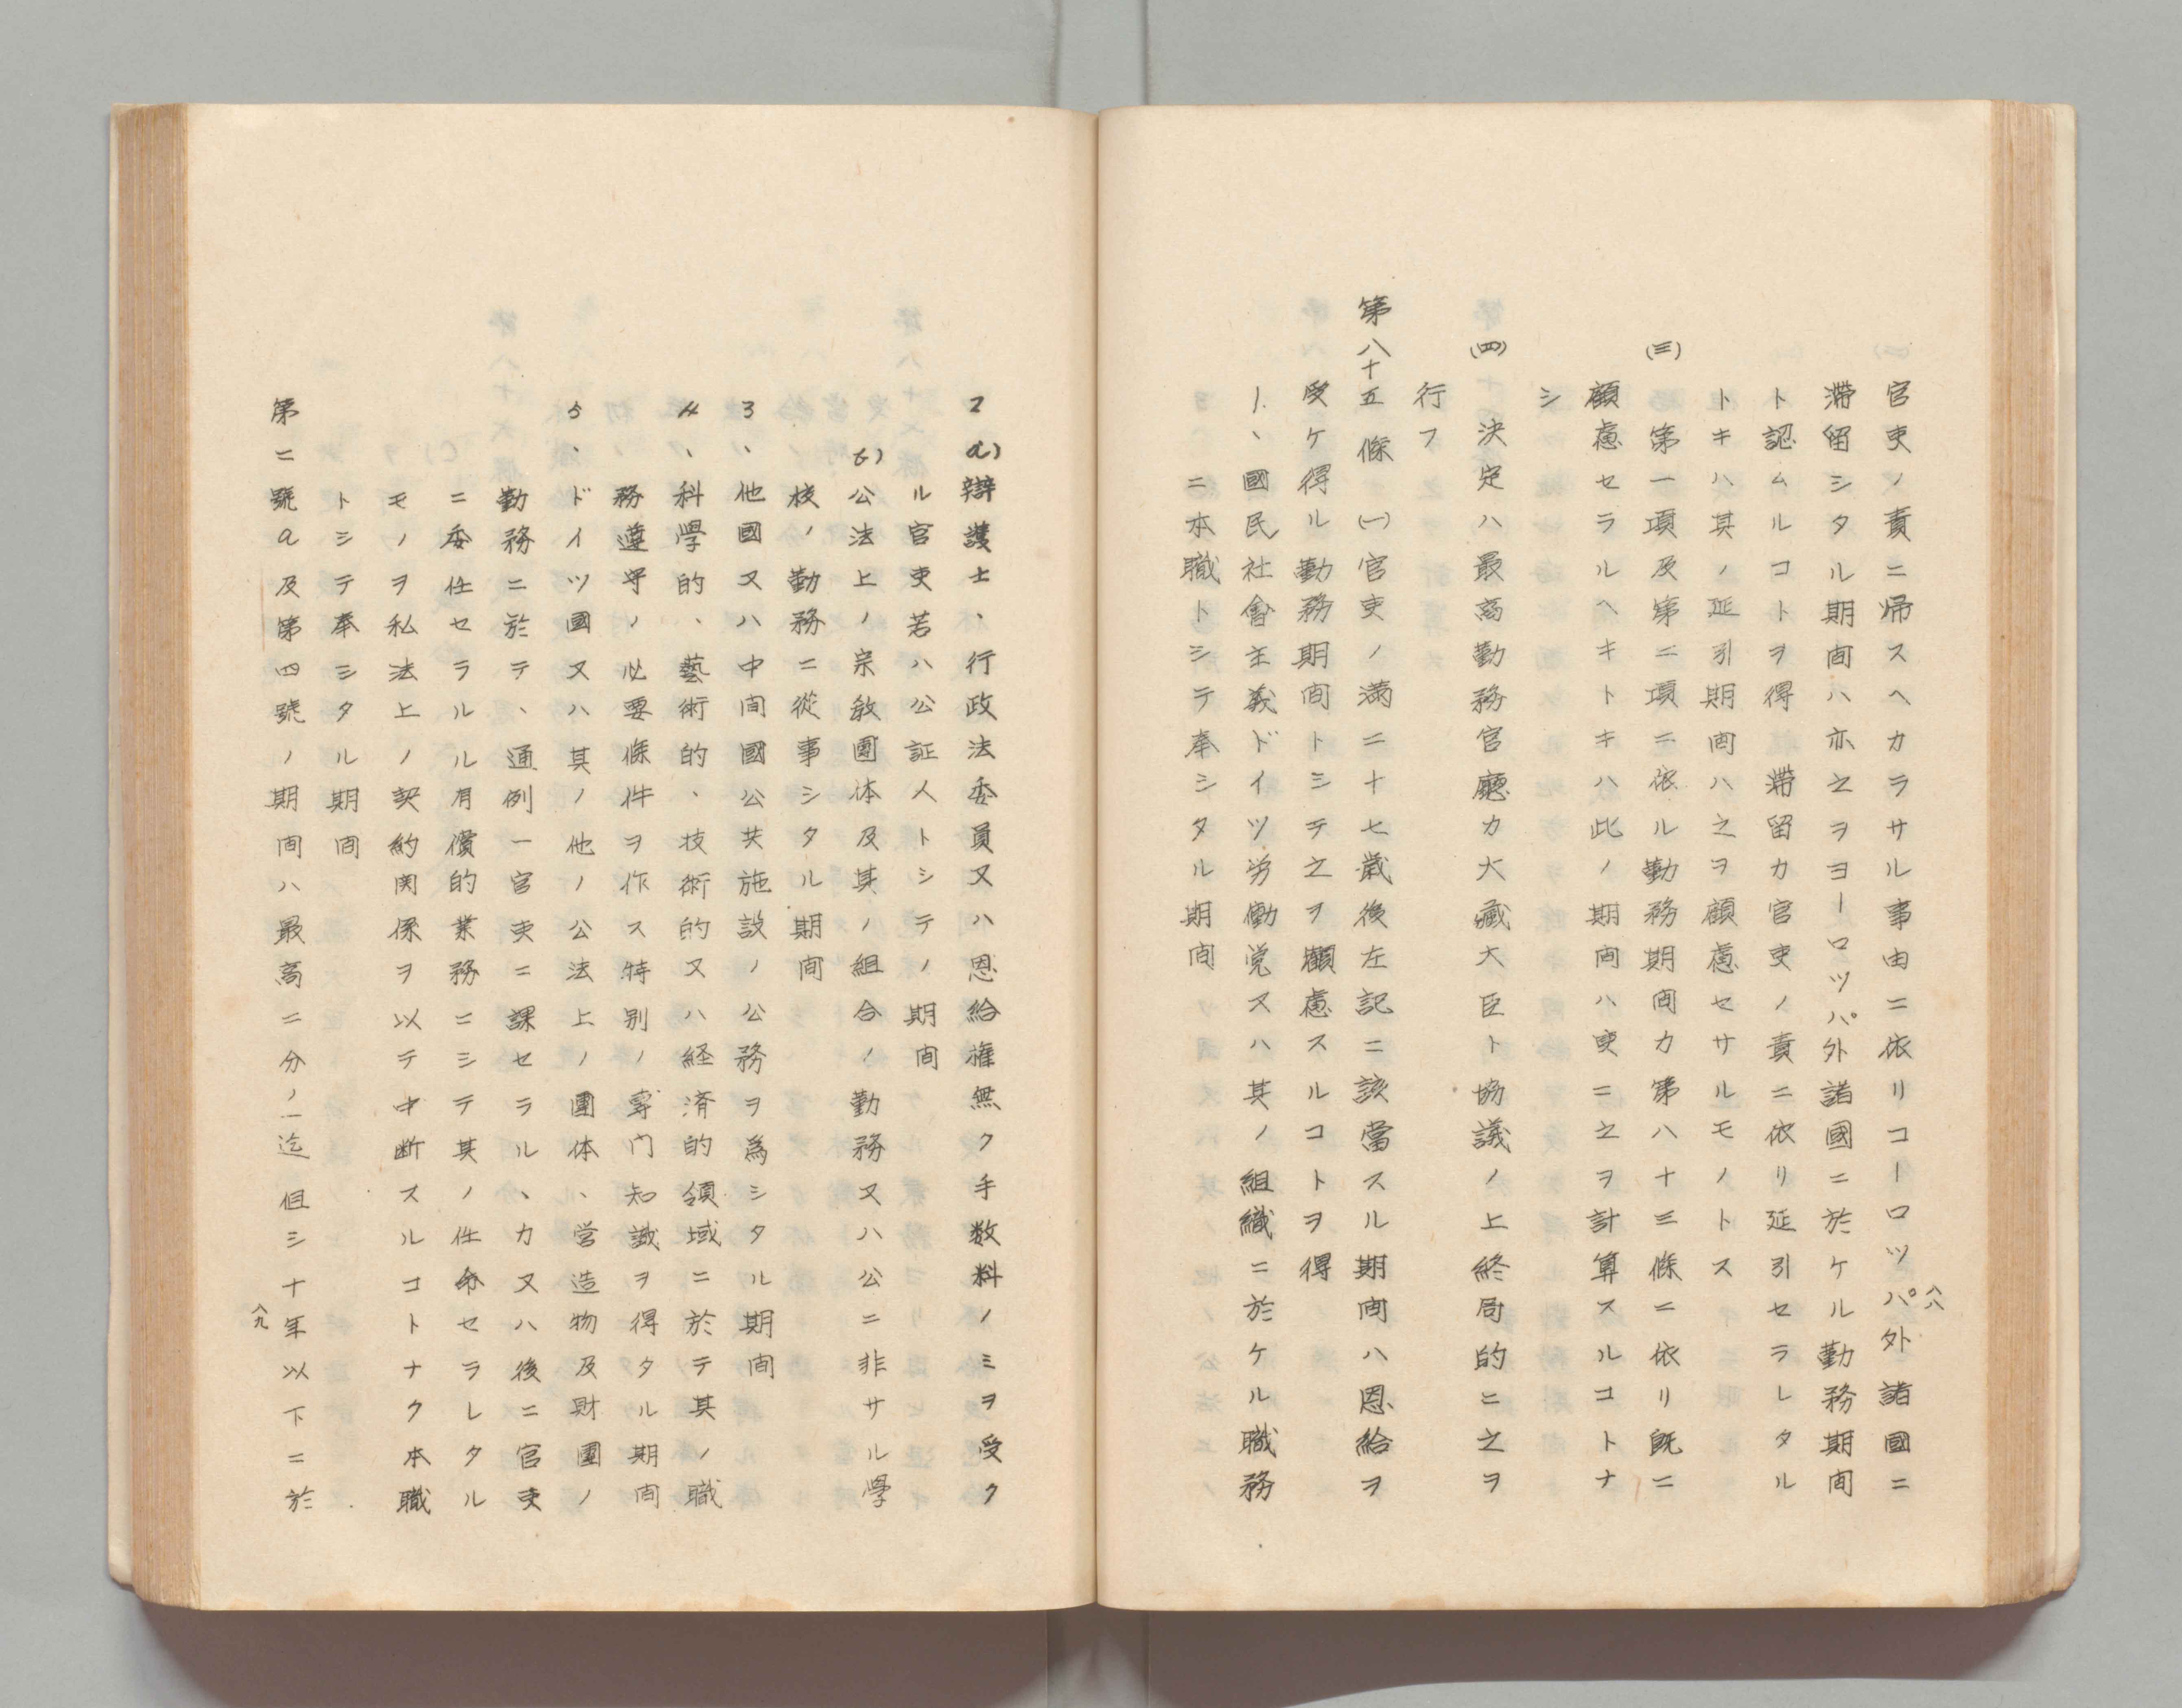 官吏ノ責ニ帰スヘカラサル事由ニ依リヨーロツパ外諸國ニ
滞留シタル期間ハ亦之ヲヨーロツパ外諸國ニ於ケル勤務期間
ト認ムルコトヲ得 滞留カ官吏ノ責ニ依リ延引セラレタル
トキハ其ノ延引期間ハ之ヲ顧慮セサルモノトス
(三) 第一項及第二項ニ依ル勤務期間カ第八十三條ニ依リ既ニ
顧慮セラルヘキトキハ此ノ期間ハ更ニ之ヲ計算スルコトナ
シ
(四) 決定ハ最高勤務官廳カ大藏大臣ト協議ノ上終局的ニ之ヲ
行フ
第八十五條 (一)官吏ノ満二十七歳後左記ニ該當スル期間ハ恩給ヲ
受ケ得ル勤務期間トシテ之ヲ顧慮スルコトヲ得
1、國民社會主義ドイツ労働党又ハ其ノ組織ニ於ケル職務
ニ本職トシテ奉シタル期間
八八
2 a)辯護士、行政法委員又ハ恩給権無ク手数料ノミヲ受ク
ル官吏若ハ公証人トシテノ期間
b)公法上ノ宗教團体及其ノ組合ノ勤務又ハ公ニ非サル學
校ノ勤務ニ從事シタル期間
3、他國又ハ中間國公共施設ノ公務ヲ為シタル期間
4、科學的、藝術的、技術的又ハ経済的領域ニ於テ其ノ職
務遵守ノ必要條件ヲ作ス特別ノ專門知識ヲ得タル期間
5、ドイツ國又ハ其ノ他ノ公法上ノ團体、営造物及財團ノ
勤務ニ於テ、通例一官吏ニ課セラル、カ又ハ後ニ官吏
ニ委任セラルル有償的業務ニシテ其ノ任命セラレタル
モノヲ私法上ノ契約関係ヲ以テ中断スルコトナク本職
トシテ奉シタル期間
第二號a及第四號ノ期間ハ最高二分ノ一迄 但シ十年以下ニ於
八九